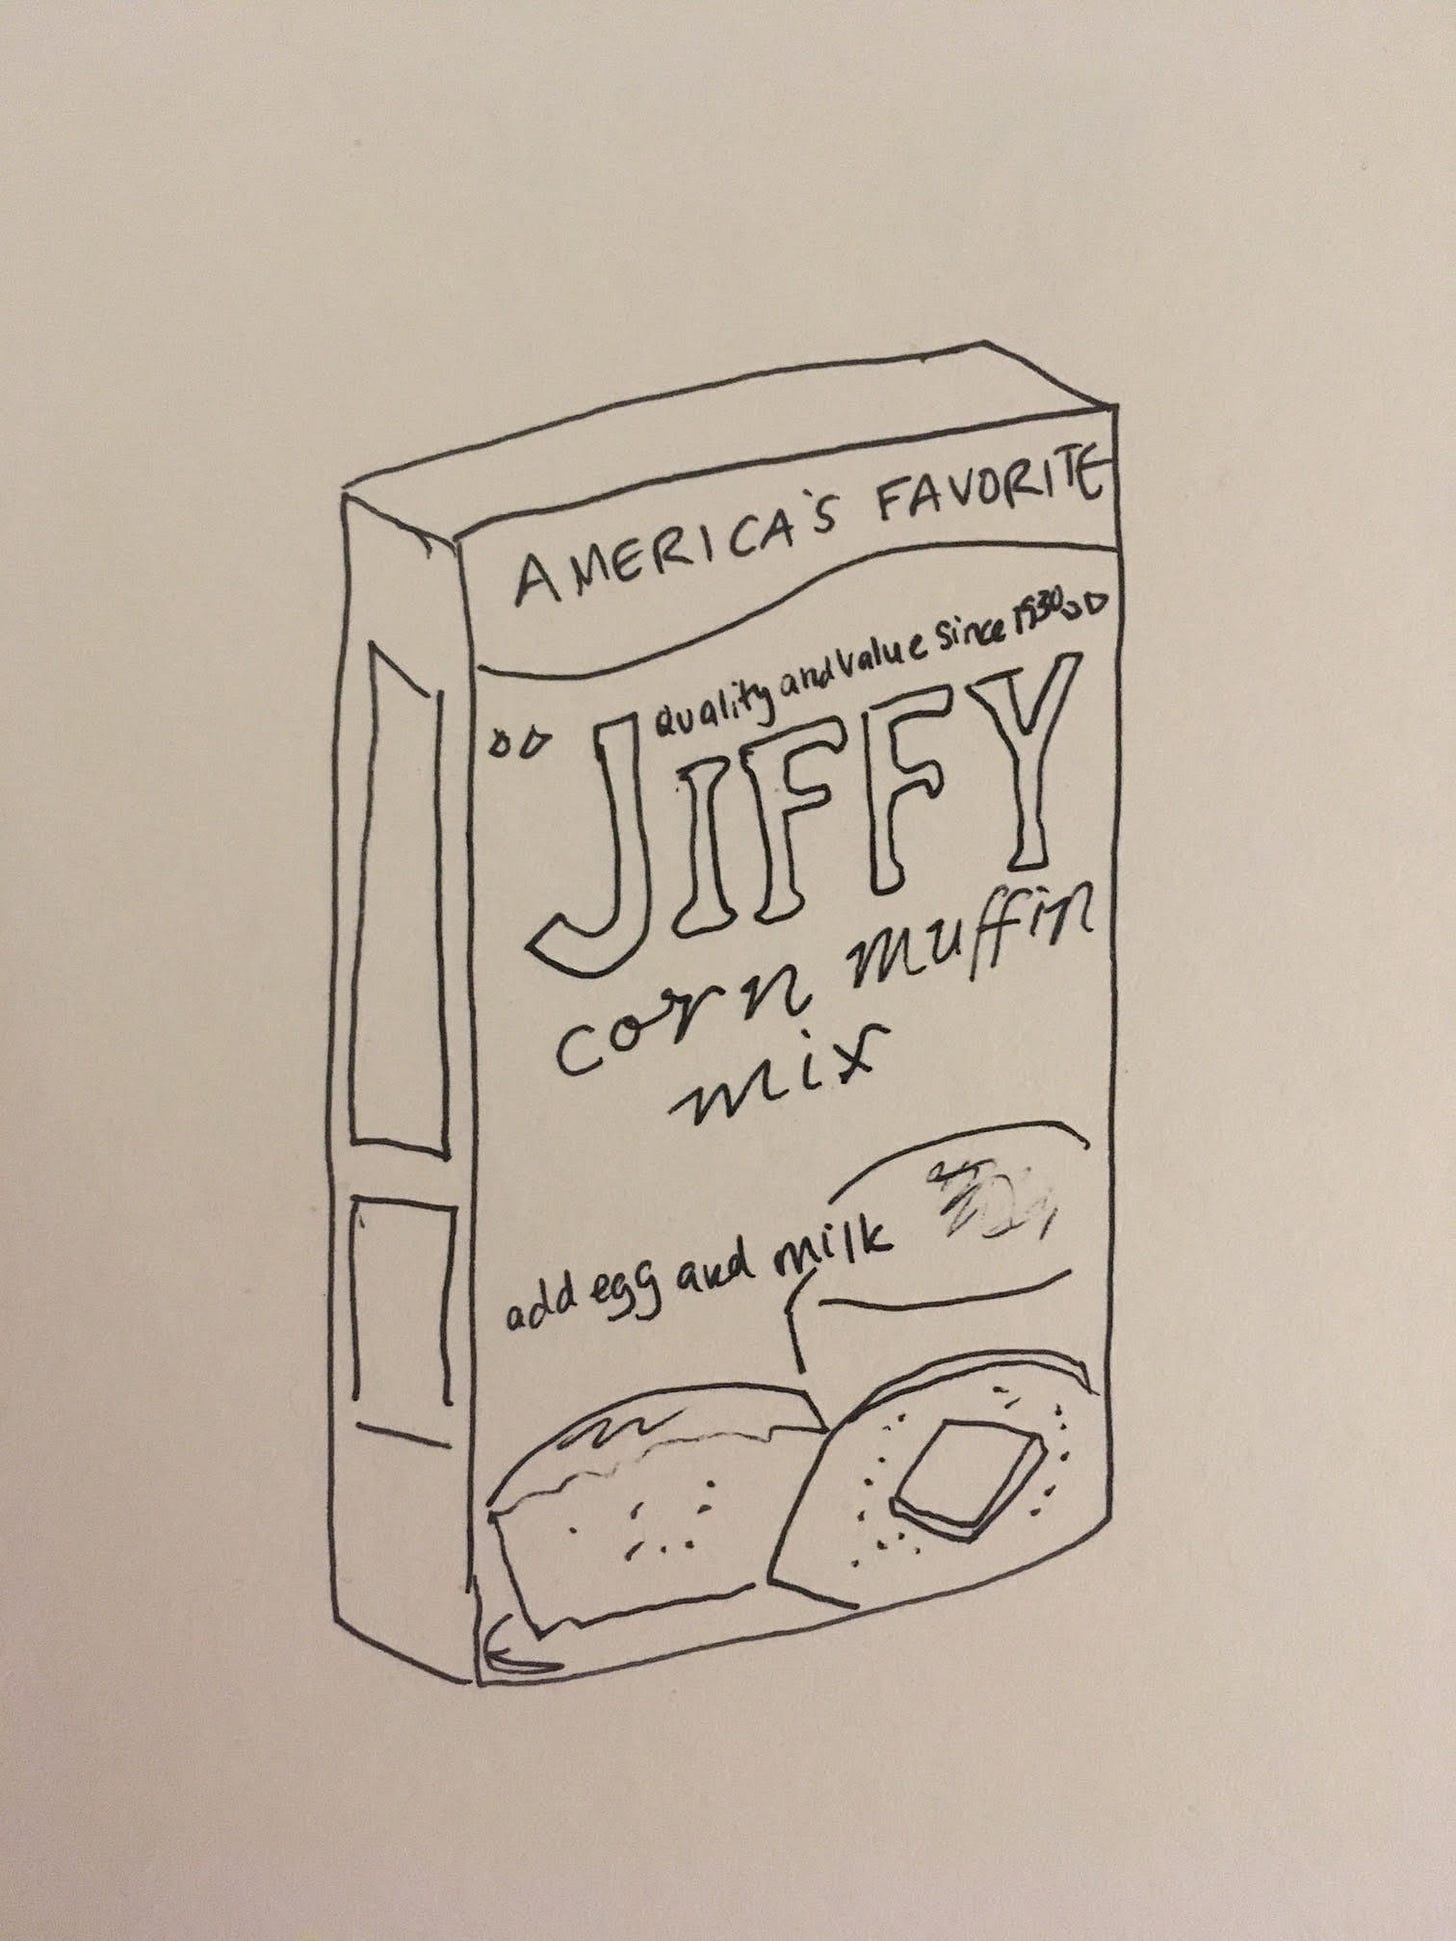 AMERICA'S FAVORITE
Quality and Value Since 1930
JIFFY
corn muffin
mix
add egg and milk